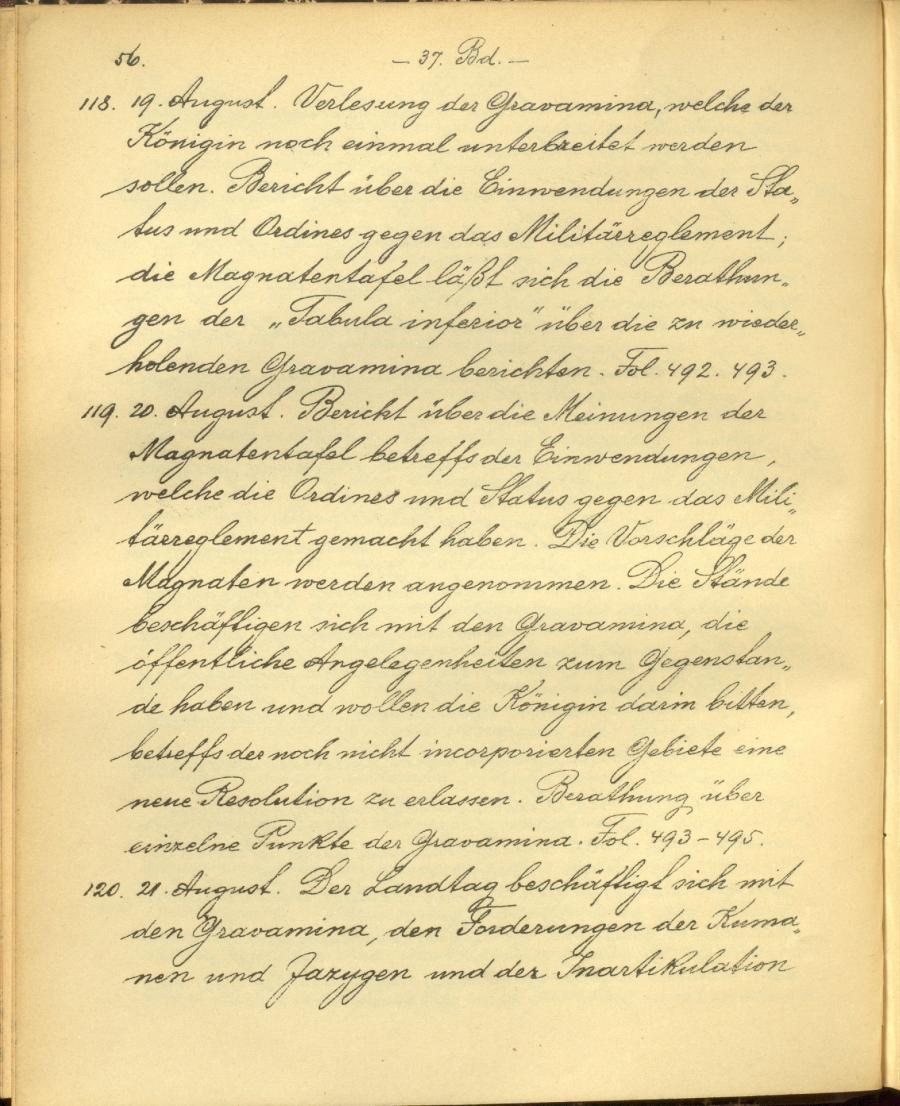 56. — 37. Bd. —
118. 19. August. Verlesung der Gravamina, welche der
Königin noch einmal unterbreitet werden
sollen. Bericht über die Einwendungen der Sta„
tus und Ordines gegen das Militärreglement;
die Magnatentafel läßt sich die Berathun„
gen der „Tabula inferior" über die zu wieder„
holenden Gravamina berichten. Fol. 492. 493.
119. 20. August. Bericht über die Meinungen der
Magnatentafel betreffs der Einwendungen,
welche die Ordines und Status gegen das Mili„
tärreglement gemacht haben. Die Vorschläge der
Magnaten werden angenommen. Die Stände
beschäftigen sich mit den Gravamina, die
öffentliche Angelegenheiten zum Gegenstan„
de haben und wollen die Königin darin bitten,
betreffs der noch nicht incorporierten Gebiete eine
neue Resolution zu erlassen. Berathung über
einzelne Punkte der Gravamina. Fol. 493–495.
120. 21. August. Der Landtag beschäftigt sich mit
den Gravamina, den Forderungen der Kuma„
nen und Jazygen und der Inartikulation